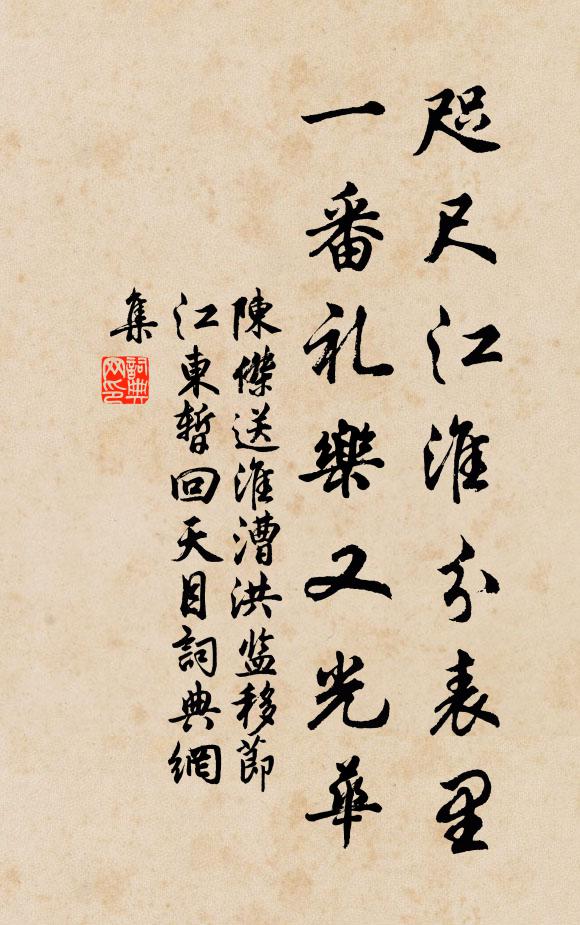 咫尺江淮分表里
一番礼樂又光華
陳傑送淮漕洪监移節
江東暫回天目詞典網
集
詞典
网印